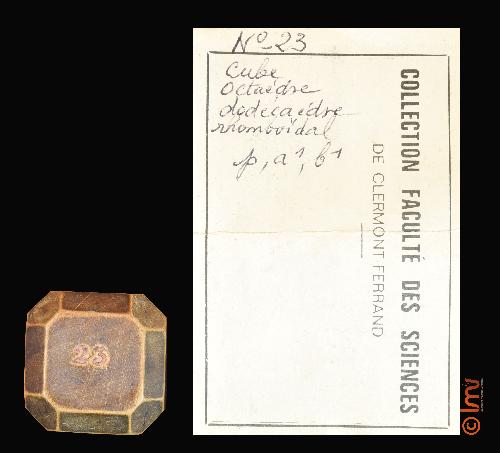 No 23
Cube
Octaèdre
dodécaèdre
rhomboïdal
p, a¹, b¹
COLLECTION FACULTÉ DES SCIENCES
DE CLERMONT-FERRAND
23